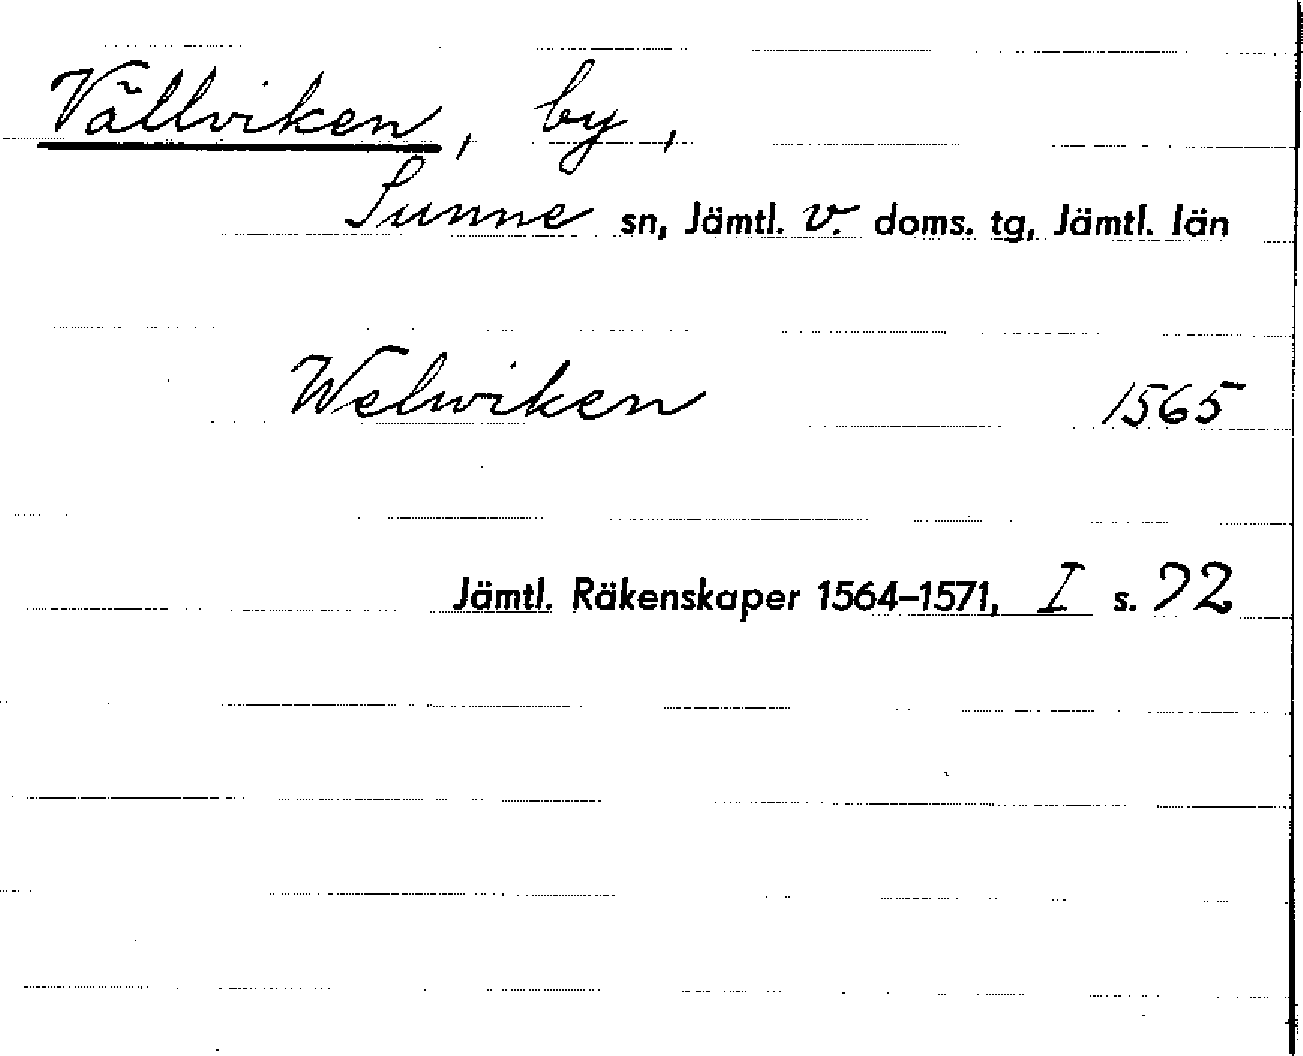 Vällviken, by,
Sunne sn, Jämtl. v. doms. tg, Jämtl. län
Welwiken 1565
Jämtl. Räkenskaper 1564–1571, I s. 92